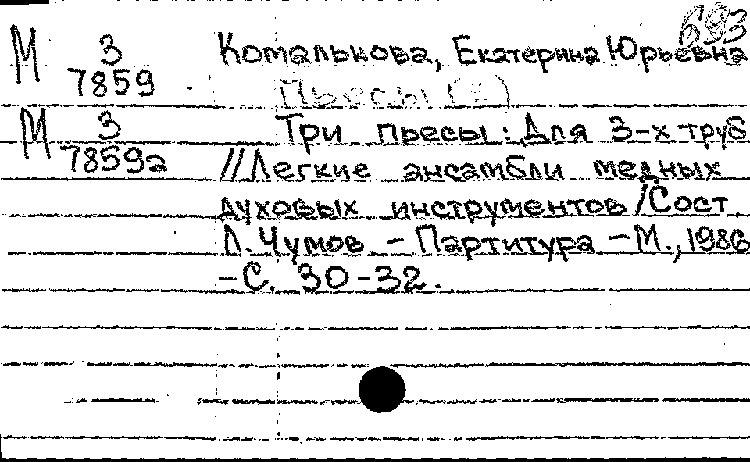 693
М З Комалькова, Екатерина Юрьевна
7859 Пьесы
М З Три пьесы: Для 3-х труб
7859а //Легкие ансамбли медных
духовых инструментов/Сост
Л. Чумов - Партитура - М., 1986
- С. 30-32.